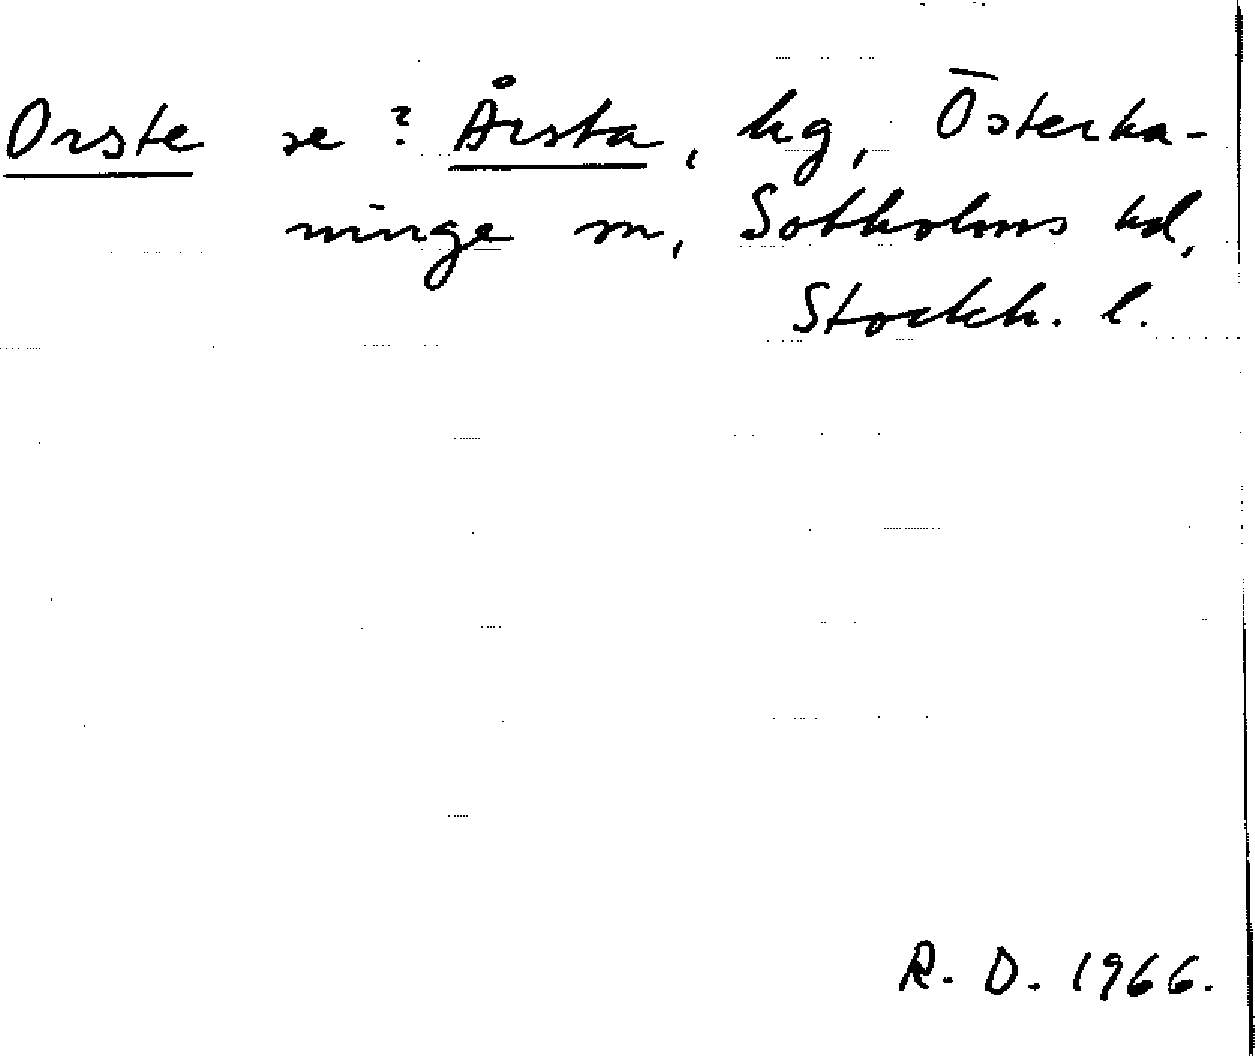 Orste se ? Årsta, hg, Österha-
ninge sn, Sotholms hd,
Stockh. l.
R. D. 1966.